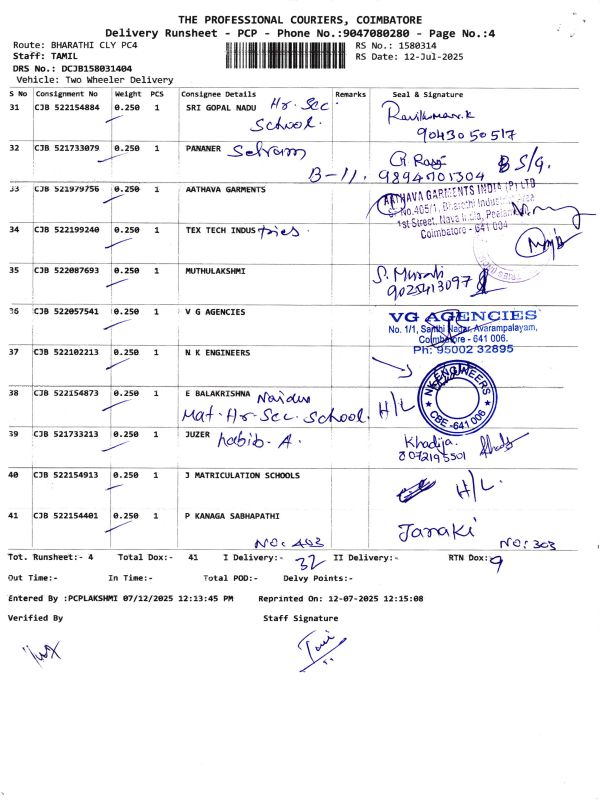 THE PROFESSIONAL COURIERS, COIMBATORE
Delivery Runsheet - PCP - Phone No.:9047080280 - Page No.:4
Route: BHARATHI CLY PC4 RS No.: 1580314
Staff: TAMIL RS Date: 12-Jul-2025
DRS No.: DCJB158031404
Vehicle: Two Wheeler Delivery
S No Consignment No Weight PCS Consignee Details Remarks Seal & Signature
31 CJB 522154884 0.250 1 SRI GOPAL NADU Hr. Sec
School. Ravikumar.k
9043050517
32 CJB 521733079 0.250 1 PANANER Selvam
B-11. 9894701304
33 CJB 521979756 0.250 1 AATHAVA GARMENTS
AATHAVA GARMENTS INDIA (P) LTD
1st Street, Nava India,
Coimbatore - 641 004
34 CJB 522199240 0.250 1 TEX TECH INDUStries.
35 CJB 522087693 0.250 1 MUTHULAKSHMI S. Murali
9025413097
36 CJB 522057541 0.250 1 V G AGENCIES
VG AGENCIES
No. 1/1, Santhi Nagar, Avarampalayam,
Coimbatore - 641 006.
Ph: 95002 32895
37 CJB 522102213 0.250 1 N K ENGINEERS
NK ENGINEERS
CBE -641 006
38 CJB 522154873 0.250 1 E BALAKRISHNA Naidu
Mat. Hr. Sec. School. H/L
39 CJB 521733213 0.250 1 JUZER habib - A. Khadija.
8072195501
40 CJB 522154913 0.250 1 J MATRICULATION SCHOOLS H/L.
41 CJB 522154401 0.250 1 P KANAGA SABHAPATHI Janaki
NO: 403 NO: 303
Tot. Runsheet:- 4 Total Dox:- 41 I Delivery:- 32 II Delivery:- RTN Dox:- 9
Out Time:- In Time:- Total POD:- Delvy Points:-
Entered By :PCPLAKSHMI 07/12/2025 12:13:45 PM Reprinted On: 12-07-2025 12:15:08
Verified By Staff Signature